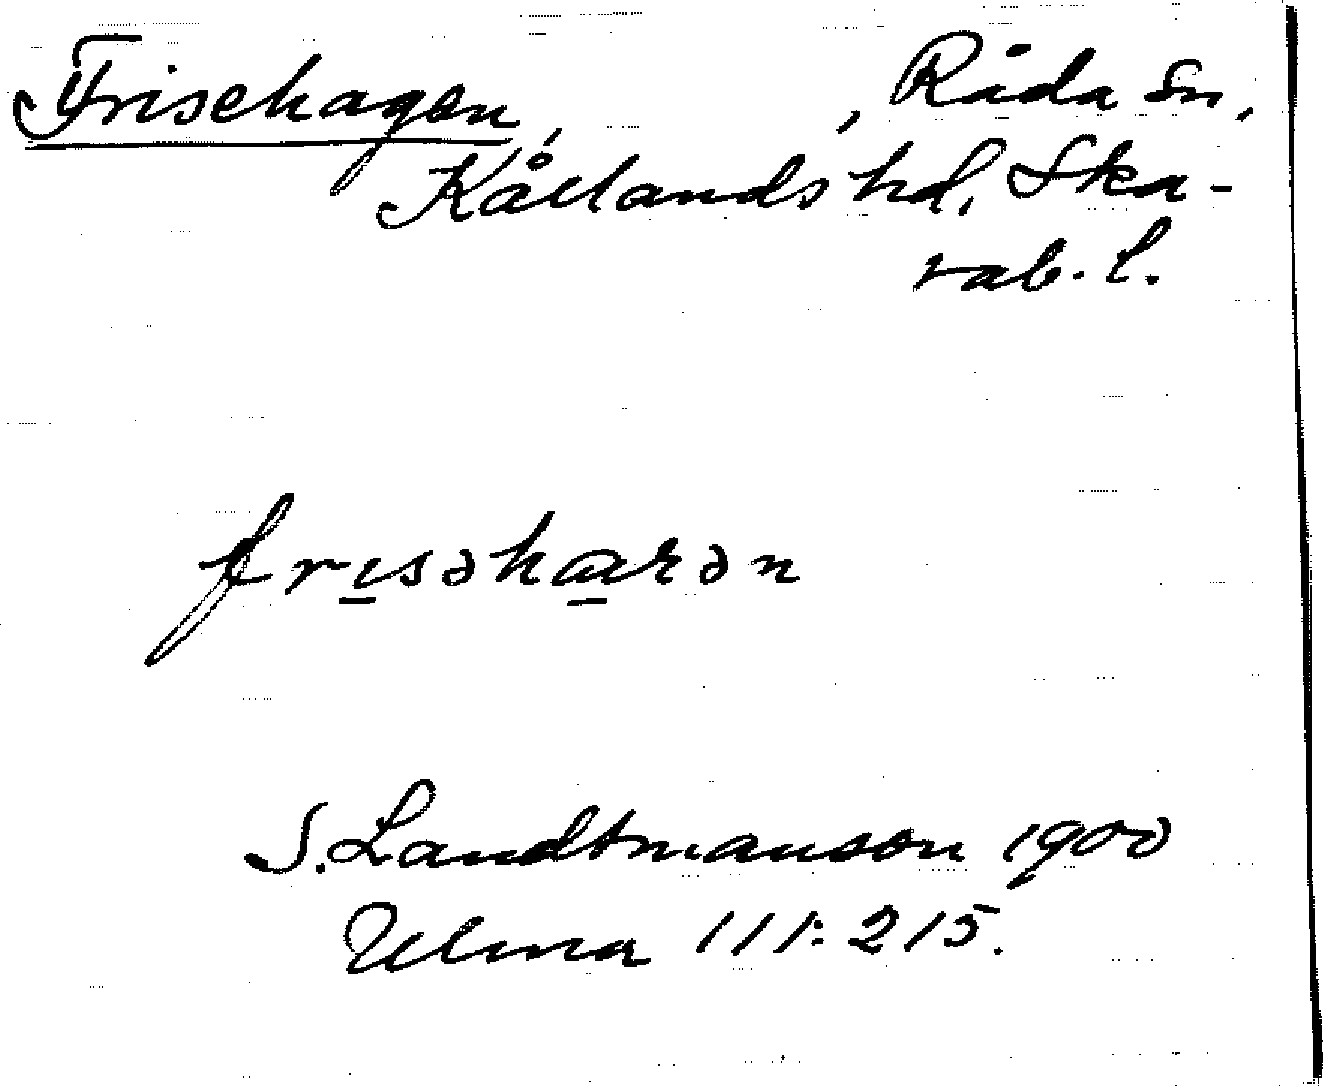 Frisehagen, , Råda sn,
Kållands hd, Ska-
rab. l.
frɪsəhaʀən
S. Landtmanson 1900
Ulma 111: 215.